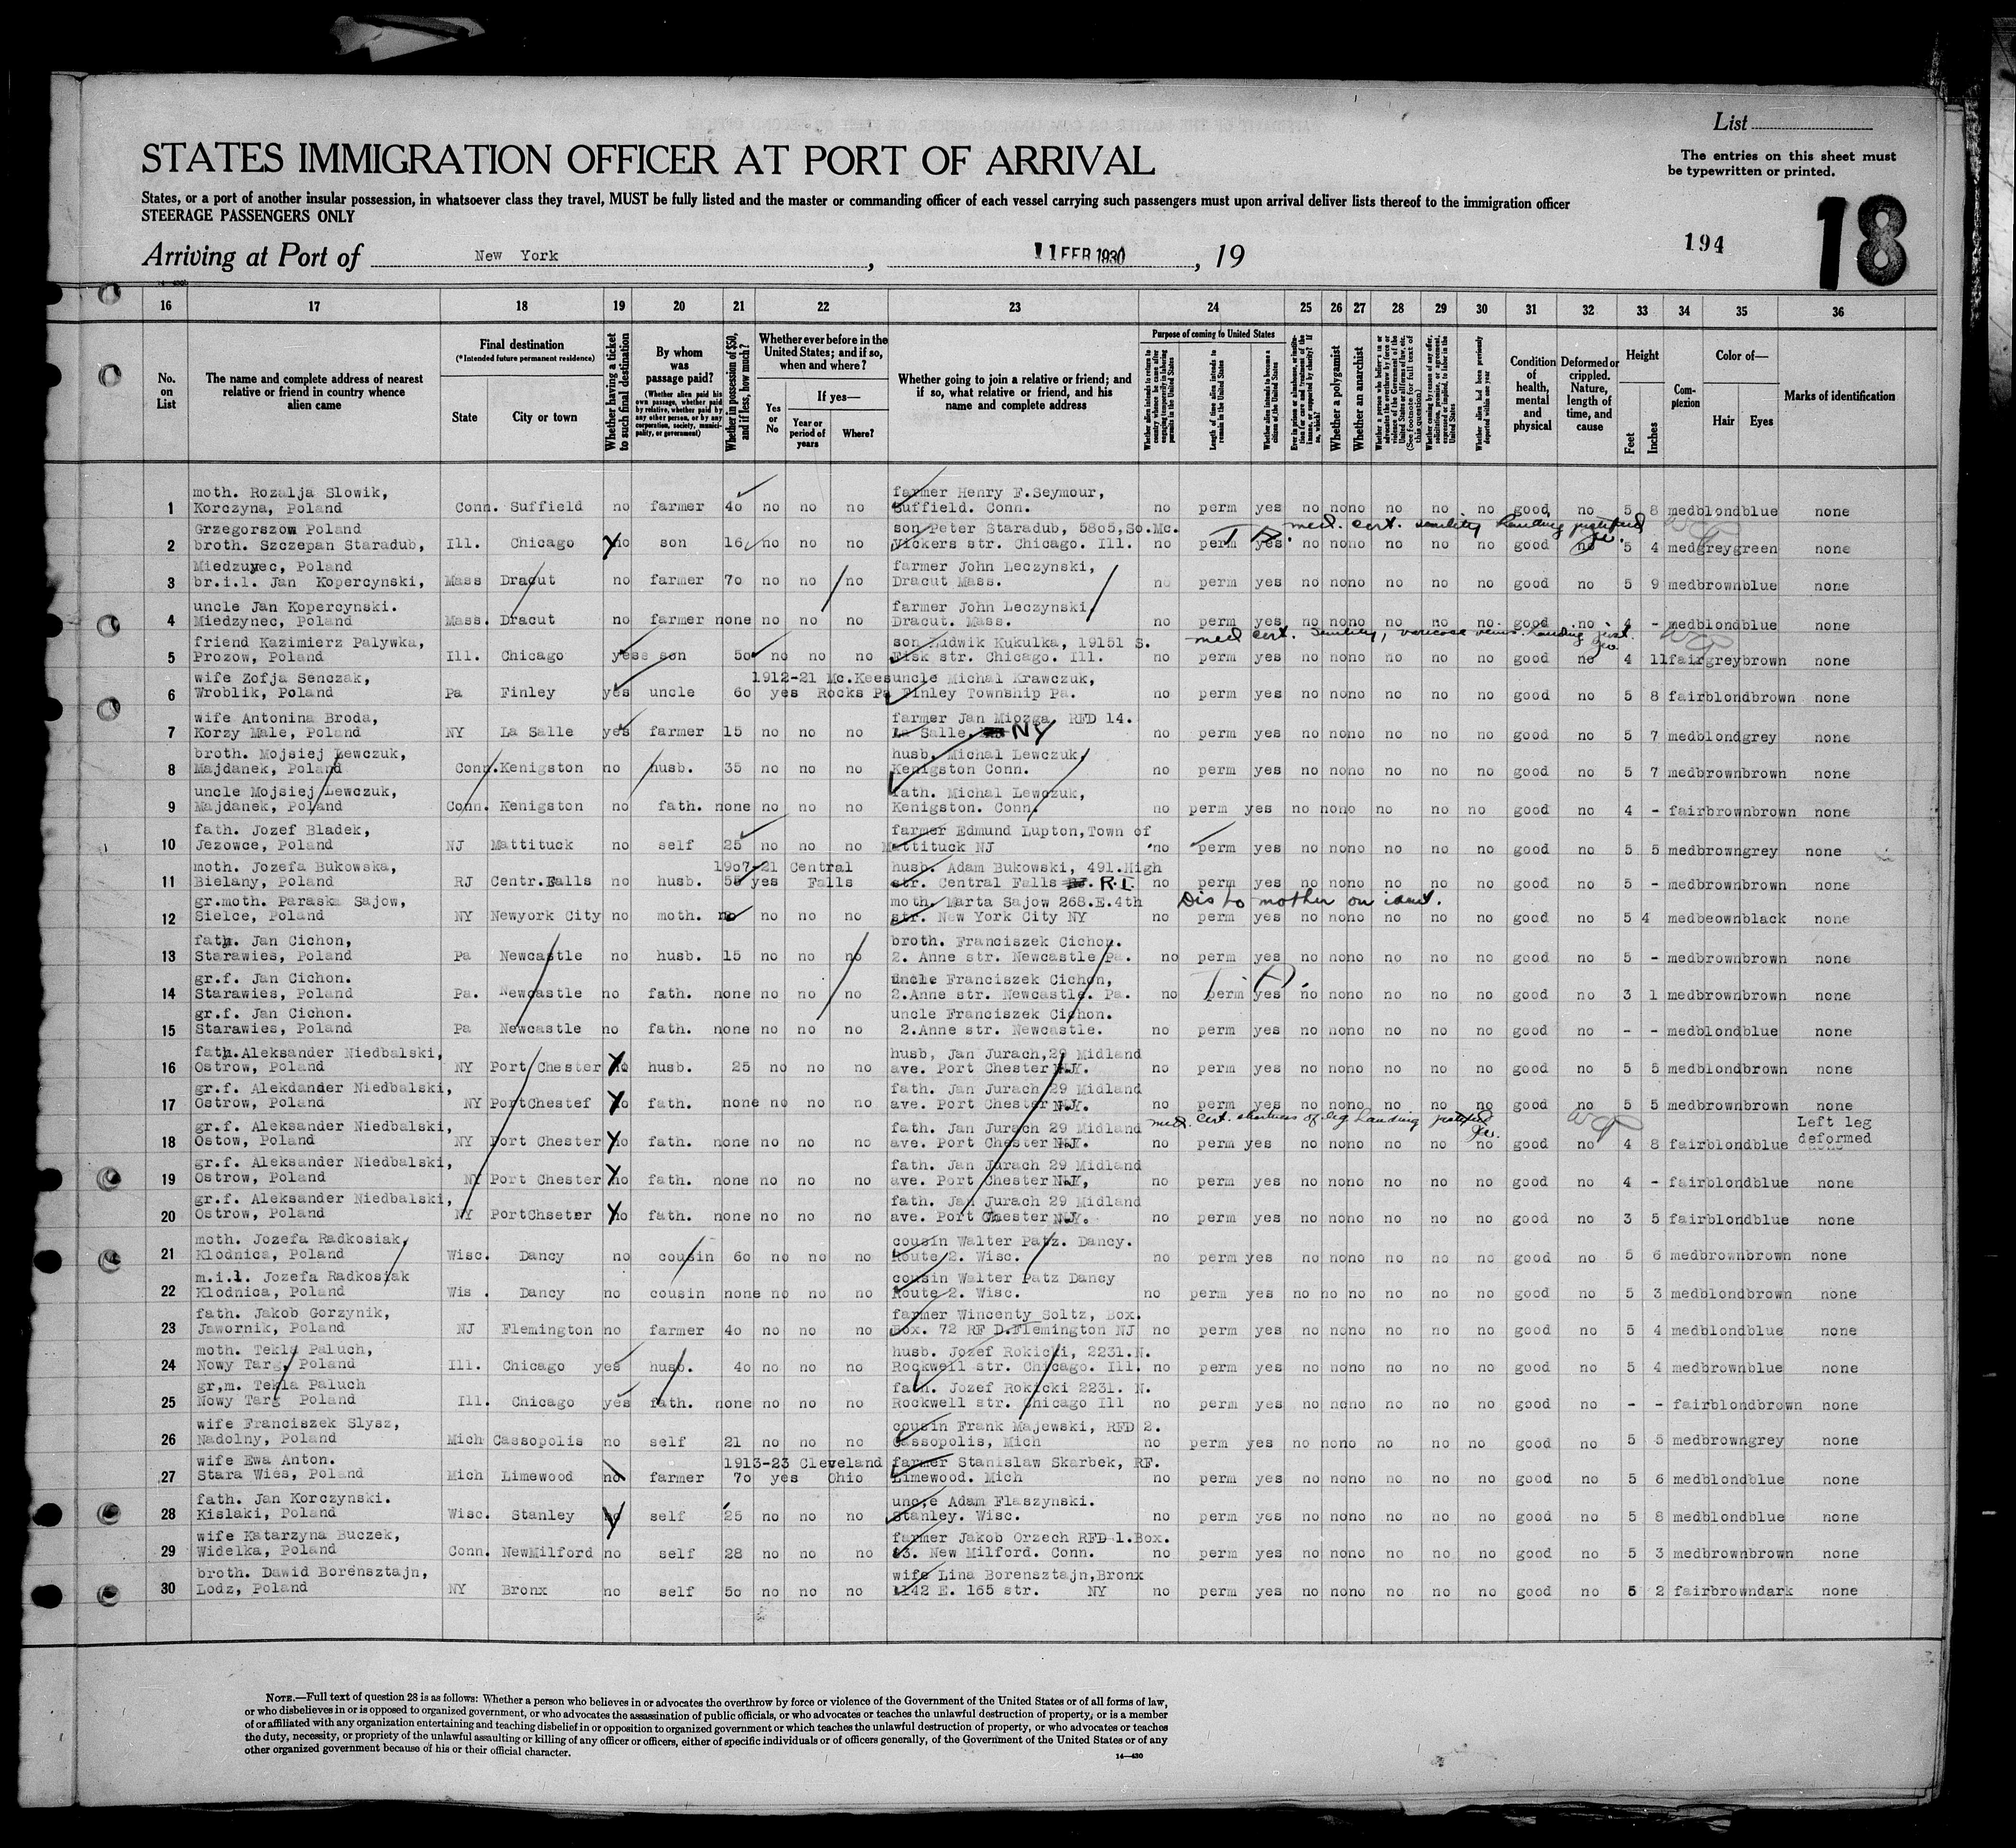 List
STATES IMMIGRATION OFFICER AT PORT OF ARRIVAL
The entries on this sheet must
be typewritten or printed.
States, or a port of another insular possession, in whatsoever class they travel, MUST be fully listed and the master or commanding officer of each vessel carrying such passengers must upon arrival deliver lists thereof to the immigration officer
STEERAGE PASSENGERS ONLY
194
18
Arriving at Port of New York, 11 FEB 1930, 19
16 17 18 19 20 21 22 23 24 25 26 27 28 29 30 31 32 33 34 35 36
No. on List
The name and complete address of nearest relative or friend in country whence alien came
Final destination
(*Intended future permanent residence)
State
City or town
Whether having a ticket to such final destination
By whom was passage paid?
(Whether alien paid his own passage, whether paid by relative, whether paid by any other person, or by any corporation, society, municipality, or government)
Whether in possession of $50, and if less, how much?
Whether ever before in the United States; and if so, when and where?
Yes or No
If yes—
Year or period of years
Where?
Whether going to join a relative or friend; and if so, what relative or friend, and his name and complete address
Purpose of coming to United States
Whether alien intends to return to country whence he came after engaging temporarily in laboring pursuits in the United States
Length of time alien intends to remain in the United States
Whether alien intends to become a citizen of the United States
Whether a polygamist
Whether an anarchist
(See footnote for full text of this question)
Whether alien had been previously deported within one year
Condition of health, mental and physical
Deformed or crippled. Nature, length of time, and cause
Height
Feet
Inches
Complexion
Color of—
Hair
Eyes
Marks of identification
moth. Rozalja Slowik, farmer Henry F.Seymour,
1 Korczyna, Poland Conn. Suffield no farmer 40 no no no Suffield. Conn. no perm yes no no no no no no good no 5 8 med blond blue none
Grzegorszow Poland son Peter Staradub, 5805,So.Mc. T.A. med. cert. senility landing justified
2 broth. Szczepan Staradub, Ill. Chicago no son 16 no no no Vickers str. Chicago. Ill. no perm yes no no no no no no good no 5 4 med grey green none
Miedzuyec, Poland farmer John Leczynski,
3 br.i.l. Jan Kopercynski, Mass Dracut no farmer 70 no no no Dracut Mass. no perm yes no no no no no no good no 5 9 med brown blue none
uncle Jan Kopercynski. farmer John Leczynski,
4 Miedzynec, Poland Mass. Dracut no farmer none no no no Dracut. Mass. no perm yes no no no no no no good no 4 - med blond blue none
friend Kazimierz Palywka, son Ludwik Kukulka, 19151 S. med cert. senility, varicose veins. landing just.
5 Prozow, Poland Ill. Chicago yese son 50 no no no Fisk str. Chicago. Ill. no perm yes no no no no no no good no 4 11 fair grey brown none
wife Zofja Senczak, 1912-21 Mc.Kees uncle Michal Krawczuk,
6 Wroblik, Poland Pa Finley yes uncle 60 yes Rocks Pa Finley Township Pa. no perm yes no no no no no no good no 5 8 fair blond brown none
wife Antonina Broda, farmer Jan Miozga RFD 14.
7 Korzy Male, Poland NY La Salle yes farmer 15 no no no La Salle. NY no perm yes no no no no no no good no 5 7 med blond grey none
broth. Mojsiej Lewczuk, husb. Michal Lewczuk,
8 Majdanek, Poland Conn. Kenigston no husb. 35 no no no Kenigston Conn. no perm yes no no no no no no good no 5 7 med brown brown none
uncle Mojsiej Lewczuk, fath. Michal Lewczuk,
9 Majdanek, Poland Conn. Kenigston no fath. none no no no Kenigston. Conn. no perm yes no no no no no no good no 4 - fair brown brown none
fath. Jozef Bladek, farmer Edmund Lupton,Town of
10 Jezowce, Poland NJ Mattituck no self 25 no no no Mattituck NJ no perm yes no no no no no no good no 5 5 med brown grey none
moth. Jozefa Bukowska, 1907-21 Central husb. Adam Bukowski, 491.High
11 Bielany, Poland RJ Centr.Falls no husb. 55 yes Falls str. Central Falls R.I. no perm yes no no no no no no good no 5 - med brown brown none
gr.moth. Paraska Sajow, moth. Marta Sajow 268.E.4th Dis to mother on ident.
12 Sielce, Poland NY Newyork City no moth. no no no no str. New York City NY no perm yes no no no no no no good no 5 4 med beown black none
fath. Jan Cichon, broth. Franciszek Cichon.
13 Starawies, Poland Pa Newcastle no husb. 15 no no no 2. Anne str. Newcastle Pa. no perm yes no no no no no no good no 5 - med brown brown none
gr.f. Jan Cichon. uncle Franciszek Cichon, T.A.
14 Starawies, Poland Pa. Newcastle no fath. none no no no 2.Anne str. Newcastle. Pa. no perm yes no no no no no no good no 3 1 med brown brown none
gr.f. Jan Cichon. uncle Franciszek Cichon.
15 Starawies, Poland Pa Newcastle no fath. none no no no 2.Anne str. Newcastle. no perm yes no no no no no no good no - - med blond blue none
fath.Aleksander Niedbalski, husb, Jan Jurach,29 Midland
16 Ostrow, Poland NY Port Chester no husb. 25 no no no ave. Port Chester N.Y. no perm yes no no no no no no good no 5 5 med blond brown none
gr.f. Alekdander Niedbalski, fath. Jan Jurach 29 Midland
17 Ostrow, Poland NY PortChestef no fath. none no no no ave. Port Chester N.Y. no perm yes no no no no no no good no 5 5 med brown brown none
gr.f. Aleksander Niedbalski, fath. Jan Jurach 29 Midland med. cert. shortness of leg landing justified Left leg
18 Ostow, Poland NY Port Chester no fath. none no no no ave. Port Chester N.Y. no perm yes no no no no no no good no 4 8 fair blond blue deformed
gr.f. Aleksander Niedbalski, fath. Jan Jurach 29 Midland
19 Ostrow, Poland NY Port Chester no fath. none no no no ave. Port Chester N.Y, no perm yes no no no no no no good no 4 - fair blond blue none
gr.f. Aleksander Niedbalski, fath. Jan Jurach 29 Midland
20 Ostrow, Poland NY PortChseter no fath. none no no no ave. Port Chester N.Y. no perm yes no no no no no no good no 3 5 fair blond blue none
moth. Jozefa Radkosiak, cousin Walter Patz. Dancy.
21 Klodnica, Poland Wisc. Dancy no cousin 60 no no no Route 2. Wisc. no perm yes no no no no no no good no 5 6 med brown brown none
m.i.l. Jozefa Radkosiak cousin Walter Patz Dancy
22 Klodnica, Poland Wis . Dancy no cousin none no no no Route 2. Wisc. no perm yes no no no no no no good no 5 3 med blond brown none
fath. Jakob Gorzynik, farmer Wincenty Soltz, Box.
23 Jawornik, Poland NJ Flemington no farmer 40 no no no Box. 72 RF D.Flemington NJ no perm yes no no no no no no good no 5 4 med blond blue none
moth. Tekla Paluch, husb. Jozef Rokicki, 2231.N.
24 Nowy Targ, Poland Ill. Chicago yes husb. 40 no no no Rockwell str. Chicago. Ill. no perm yes no no no no no no good no 5 4 med brown blue none
gr,m. Tekla Paluch fath. Jozef Rokicki 2231. N.
25 Nowy Targ Poland Ill. Chicago yes fath. none no no no Rockwell str. Chicago Ill no perm yes no no no no no no good no - - fair blond brown none
wife Franciszek Slysz, cousin Frank Majewski, RFD 2.
26 Nadolny, Poland Mich Cassopolis no self 21 no no no Cassopolis, Mich no perm yes no no no no no no good no 5 5 med brown grey none
wife Ewa Anton. 1913-23 Cleveland farmer Stanislaw Skarbek, RF.
27 Stara Wies, Poland Mich Limewood no farmer 70 yes Ohio Limewood. Mich no perm yes no no no no no no good no 5 6 med blond blue none
fath. Jan Korczynski. unc,e Adam Flaszynski.
28 Kislaki, Poland Wisc. Stanley no self 25 no no no Stanley. Wisc. no perm yes no no no no no no good no 5 8 med blond blue none
wife Katarzyna Buczek, farmer Jakob Orzech RFD 1.Box.
29 Widelka, Poland Conn. NewMilford no self 28 no no no 63. New Milford. Conn. no perm yes no no no no no no good no 5 3 med brown brown none
broth. Dawid Borensztajn, wife Lina Borensztajn,Bronx
30 Lodz, Poland NY Bronx no self 50 no no no 1142 E. 165 str. NY no perm yes no no no no no no good no 5 2 fair brown dark none
NOTE.—Full text of question 28 is as follows: Whether a person who believes in or advocates the overthrow by force or violence of the Government of the United States or of all forms of law,
or who disbelieves in or is opposed to organized government, or who advocates the assassination of public officials, or who advocates or teaches the unlawful destruction of property, or is a member
of or affiliated with any organization entertaining and teaching disbelief in or opposition to organized government or which teaches the unlawful destruction of property, or who advocates or teaches
the duty, necessity, or propriety of the unlawful assaulting or killing of any officer or officers, either of specific individuals or of officers generally, of the Government of the United States or of any
other organized government because of his or their official character.
14—430